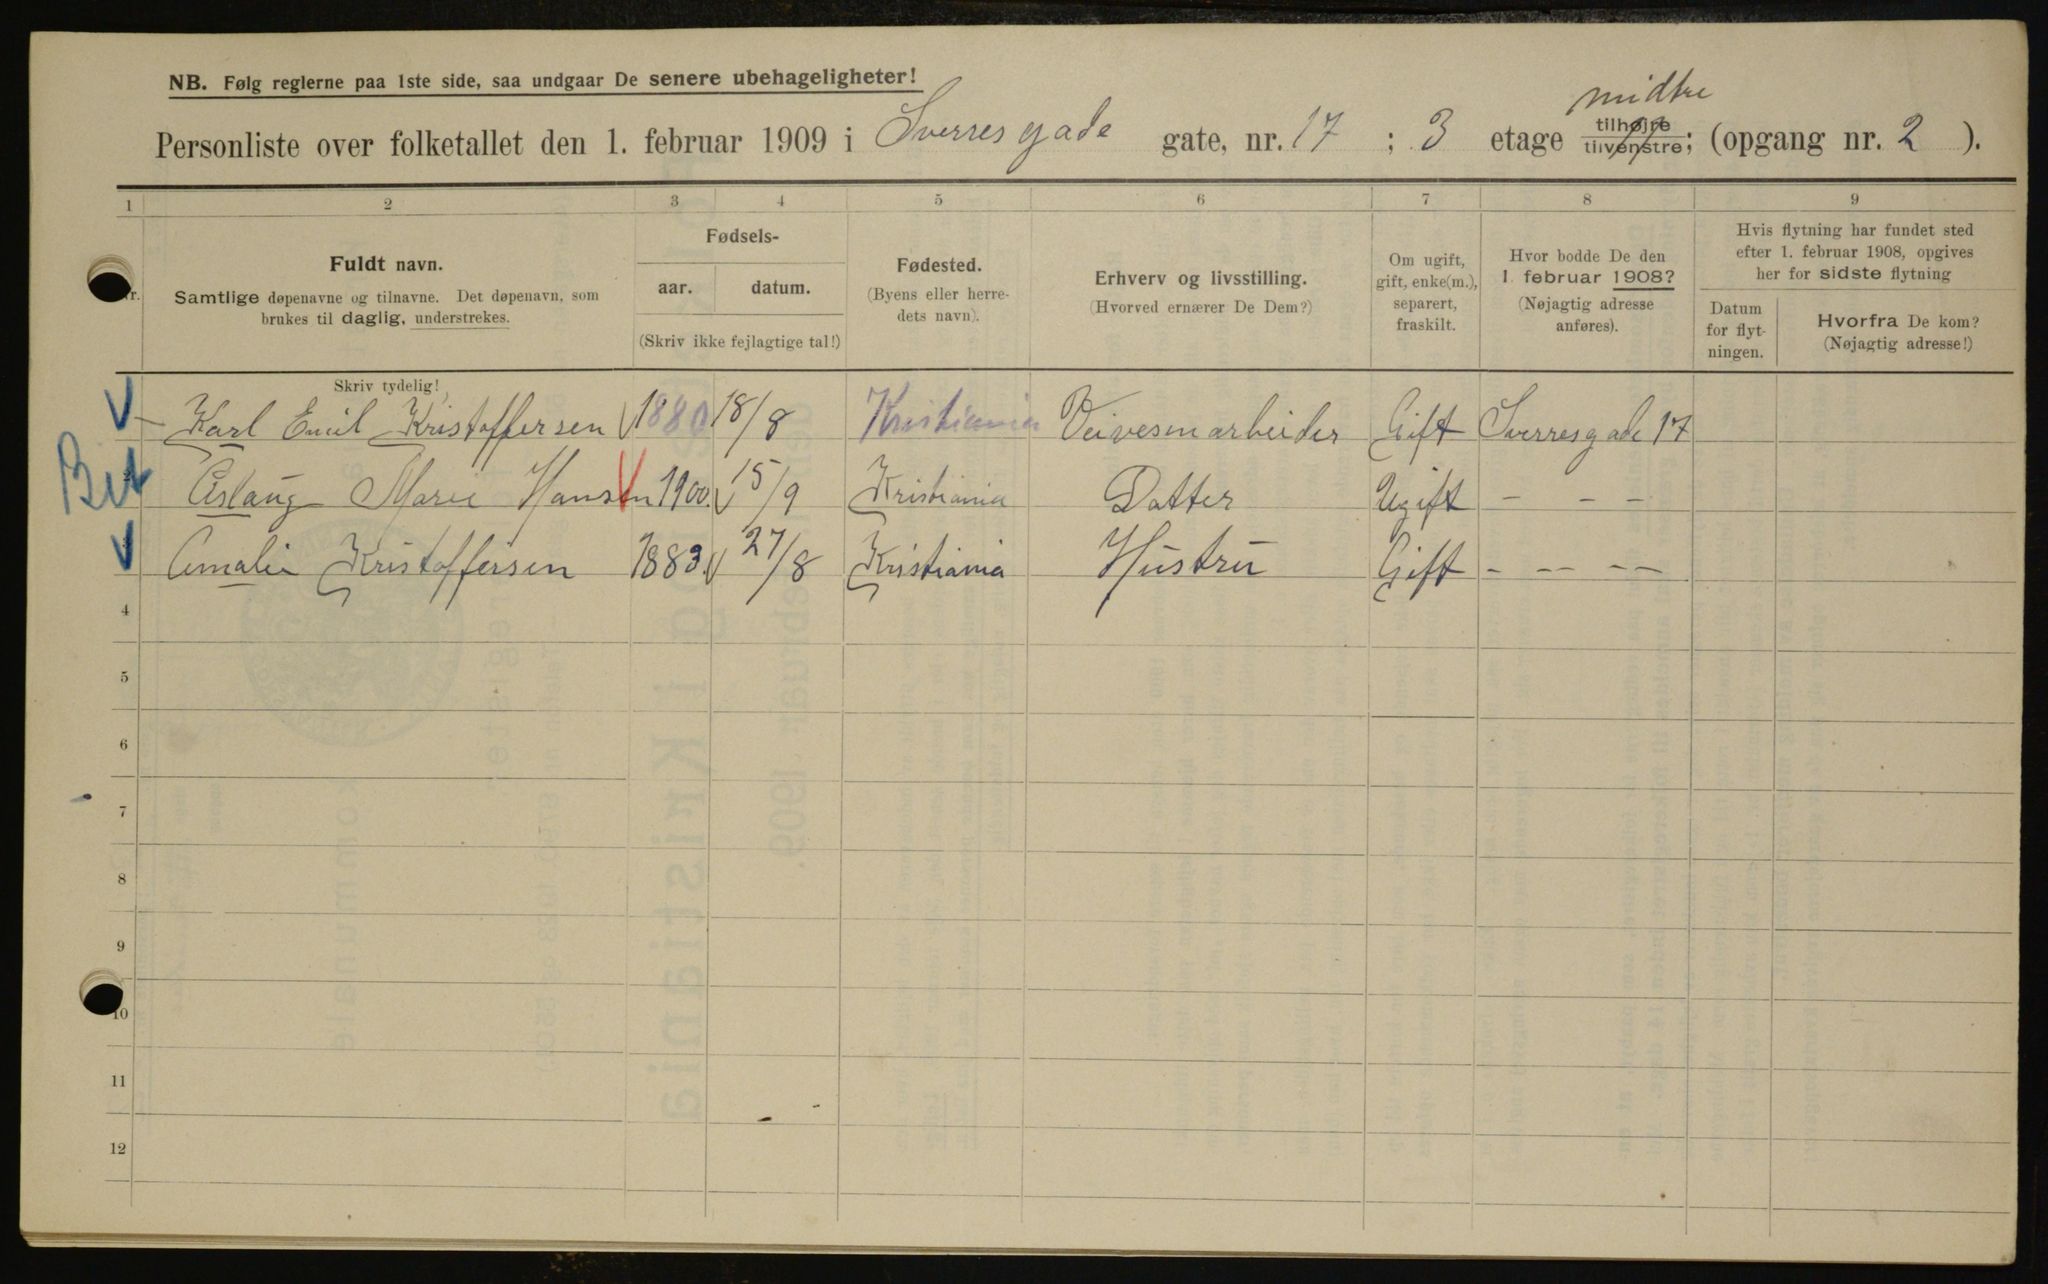 NB. Følg reglerne paa 1ste side, saa undgaar De senere ubehageligheter!
midtre
Personliste over folketallet den 1. februar 1909 i Sverresgade gate, nr. 17 ; 3 etage tilhøjre tilvenstre; (opgang nr. 2 ).
1 2 3 4 5 6 7 8 9
Nr.
Fuldt navn.
Samtlige døpenavne og tilnavne. Det døpenavn, som
brukes til daglig, understrekes.
Fødsels-
aar. datum.
(Skriv ikke fejlagtige tal!)
Fødested.
(Byens eller herre-
dets navn).
Erhverv og livsstilling.
(Hvorved ernærer De Dem?)
Om ugift,
gift, enke(m.),
separert,
fraskilt.
Hvor bodde De den
1. februar 1908?
(Nøjagtig adresse
anføres).
Hvis flytning har fundet sted
efter 1. februar 1908, opgives
her for sidste flytning
Datum
for flyt-
ningen.
Hvorfra De kom?
(Nøjagtig adresse!)
Skriv tydelig!
Karl Emil Kristoffersen 1880 18/8 Kristiania Veivesnarbeider Gift Sverresgade 17
Aslaug Marie Hansen 1900. 15/9 Kristiania Datter Ugift - - -
Amalie Kristoffersen 1883. 27/8 Kristiania Hustru Gift - -- --
4
5
6
7
8
9
10
11
12